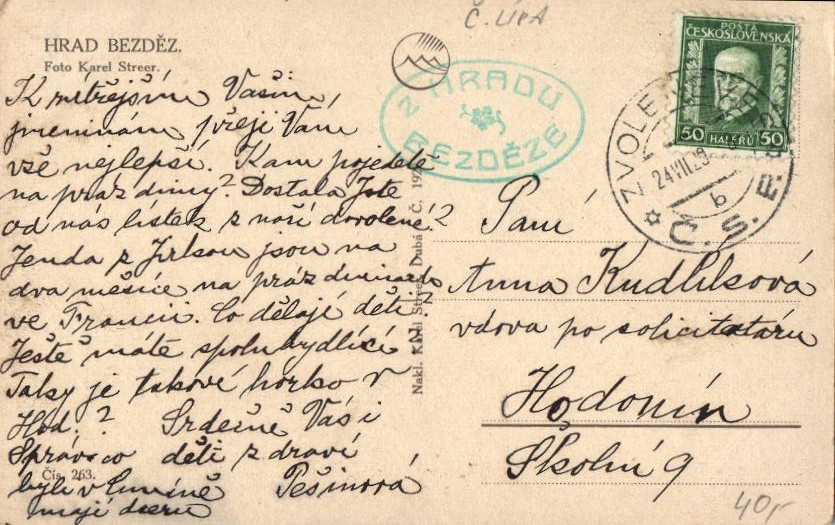 Č. LÍPA
HRAD BEZDĚZ.
Foto Karel Streer.
K zítřejším Vašim
jmeninám přeji Vám
vše nejlepší. Kam pojedete
na prázdniny? Dostala jste
od nás lístek z naší dovolené?
Jenda z Jirkou jsou na
dva měsíce na prázdninách
ve Francii. Co dělají děti?
Ještě máte spolubydlící
Taky je takové horko v
Hod.? Srdečně Vás i
děti zdraví
Pešinová
byli v
mají dceru
Čís. 263.
Z HRADU
BEZDĚZE
POŠTA
ČESKOSLOVENSKÁ
50 HALÉŘŮ 50
ZVOLE
24 VII 29
b
Č. S. R.
Nakl. Karel Streer, Dubá, Č.
Paní
Anna Kudlíková
vdova po solicitatoru
Hodonín
Školní 9
40,-